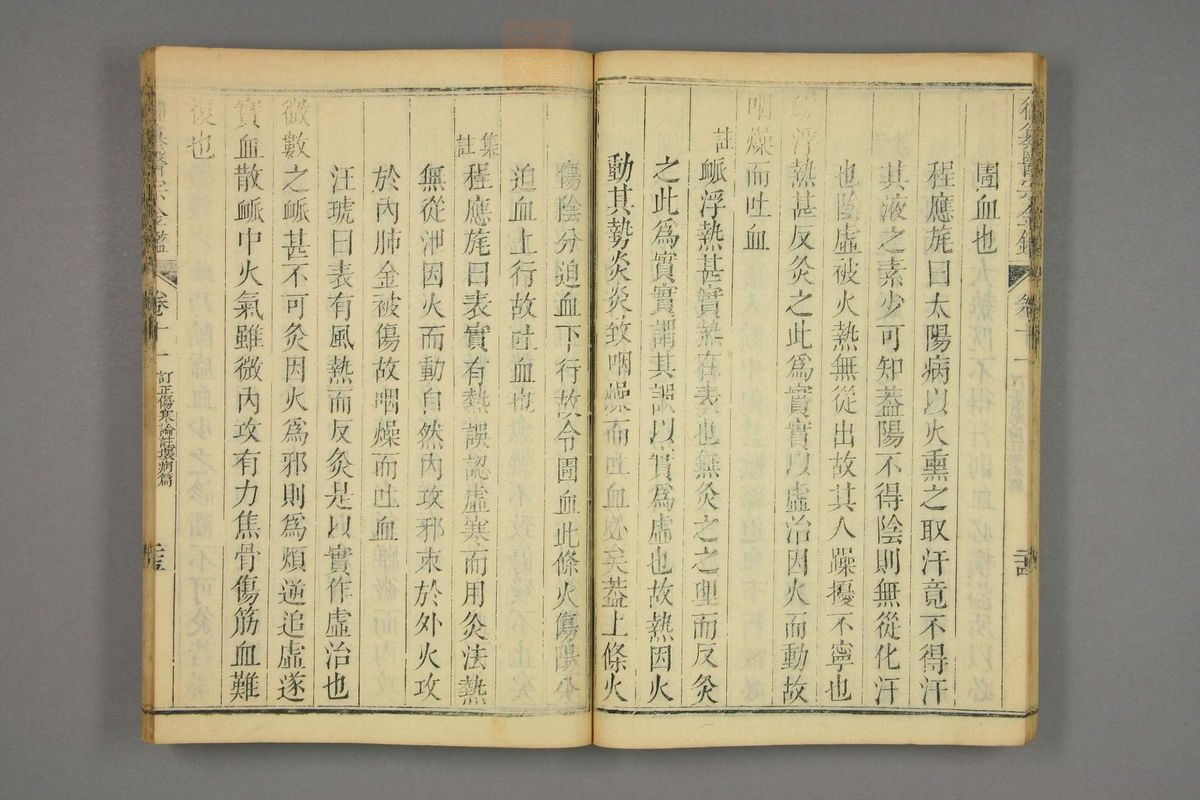 御纂醫宗金鑑 卷十一 二十四
圊血也
程應旄曰太陽病以火熏之取汗竟不得汗
其液之素少可知蓋陽不得陰則無從化汗
也陰虛被火熱無從出故其人躁擾不寧也
脈浮熱甚反灸之此爲實實以虛治因火而動故
咽燥而吐血
註
脈浮熱甚實熱在表也無灸之之理而反灸
之此爲實實謂其誤以實爲虛也故熱因火
動其勢炎炎致咽燥而吐血必矣蓋上條火
傷陰分迫血下行故令圊血此條火傷陽分
迫血上行故吐血也
集註
程應旄曰表實有熱誤認虛寒而用灸法熱
無從泄因火而動自然內攻邪束於外火攻
於內肺金被傷故咽燥而吐血
汪琥曰表有風熱而反灸是以實作虛治也
微數之脈甚不可灸因火爲邪則爲煩逆追虛遂
實血散脈中火氣雖微內攻有力焦骨傷筋血難
復也
御纂醫宗金鑑 卷十一 訂正傷寒論註壞病篇 二十五